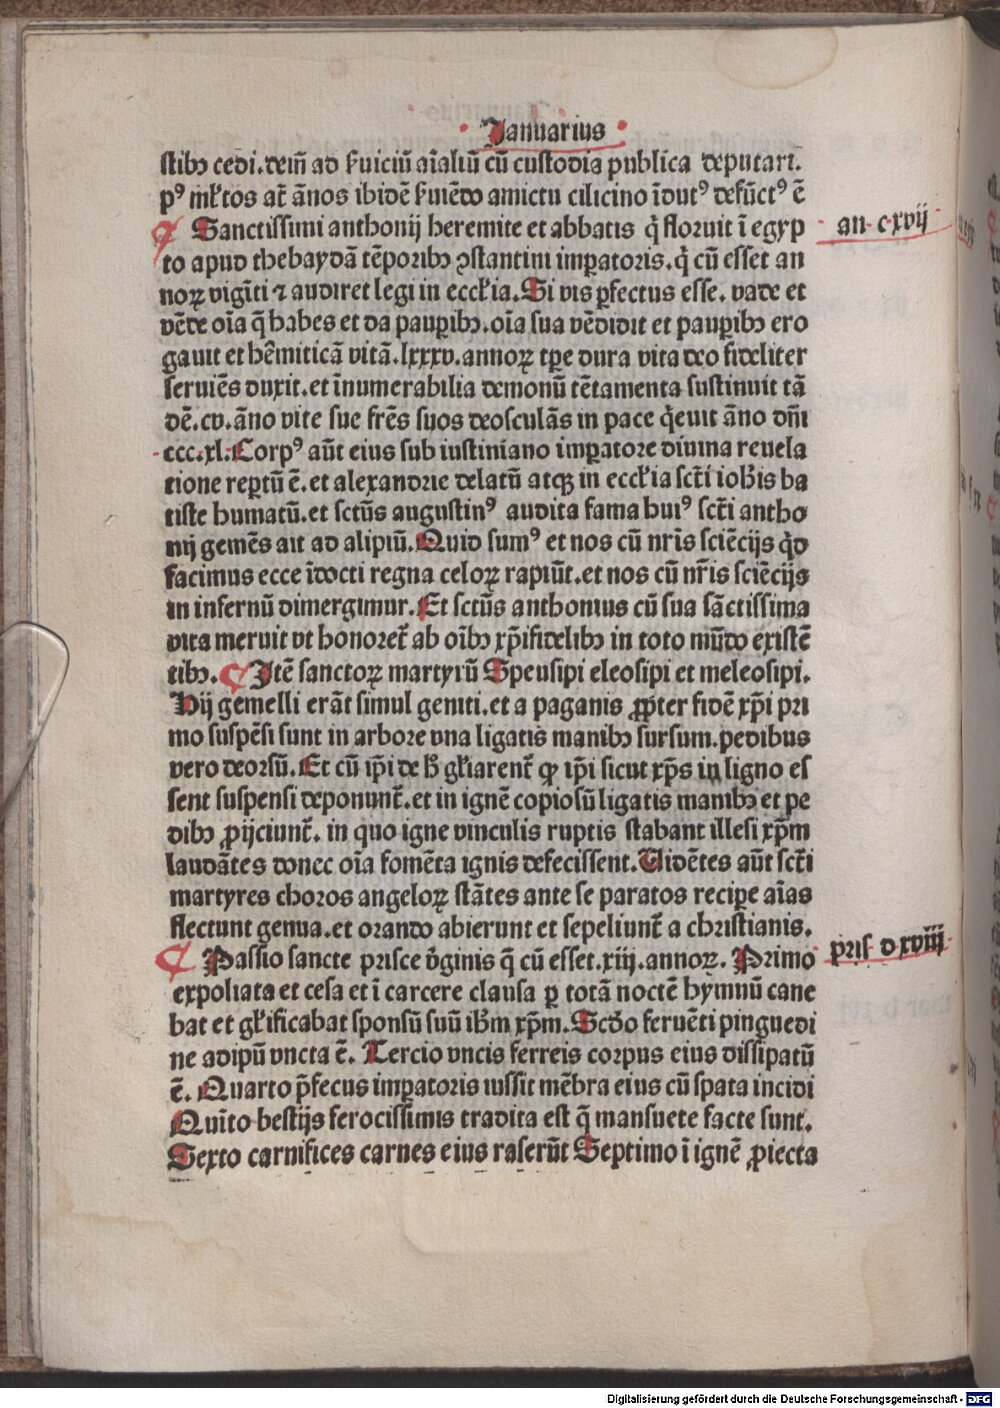 Januarius
stibꝫ cedi.dem̄ ad ẜuiciū aīaliū cū custodia publica deputari.
pꝰ ml̄tos at̄ ān̄os ibidē ẜuiēdo amictu cilicino īdutꝰ defūctꝰ ē
¶ Sanctissimi anthonij heremite et abbatis q̇ floruit ī egyp
an c xvij
to apud thebaydā tēporibꝫ ꝯstantini imꝑatoris.q̇ cū esset an
noꝝ vigīti ⁊ audiret legi in eccl̄ia.Si vis ꝑfectus esse.vade et
vēde oīa q̄ habes et da pauꝑibꝫ.oīa sua vēdidit et pauꝑibꝫ ero
gauit et hēmiticā vitā.lxxxv.annoꝝ tꝑe dura vita deo fideliter
seruiēs duxit.et īnumerabilia demonū tētamenta sustinuit tā
dē.cv.āno vite sue frēs suos deosculās in pace q̇euit āno dn̄i
ccc.xl.Corpꝰ aūt eius sub iustiniano imꝑatore diuina reuela
tione reꝑtū ē.et alexandrie delatū atqꝫ in eccl̄ia scti̅ ioh̄is ba
tiste humatū.et sctūs augustinꝰ audita fama huiꝰ scti̅ antho
nij gemēs ait ad alipiū.Quid sumꝰ et nos cū nr̄is sciēcijs q̇d
facimus ecce īdocti regna celoꝝ rapiūt.et nos cū nr̄is sciēcijs
in infernū dimergimur.Et sctūs anthonius cū sua sāctissima
vita meruit vt honoret̄ ab oībꝫ xp̄ifidelibꝫ in toto mūdo existē
tibꝫ.¶ Itē sanctoꝝ martyrū Speusipi eleosipi et meleosipi.
Hij gemelli erāt simul geniti.et a paganis ꝓpter fidē xp̄i pri
mo suspēsi sunt in arbore vna ligatis manibꝫ sursum.pedibus
vero deorsū.Et cū ip̄i de h̄ gl̄iarent̄ ꝙ ip̄i sicut xp̄s in ligno es
sent suspensi deponunt̄.et in ignē copiosū ligatis manibꝫ et pe
dibꝫ ꝓijciunt̄. in quo igne vinculis ruptis stabant illesi xp̄m
laudātes donec oīa fomēta ignis defecissent.Uidētes aūt scti̅
martyres choros angeloꝝ stātes ante se paratos reciꝑe aīas
flectunt genua.et orando abierunt et sepeliunt̄ a christianis.
¶ Passio sancte prisce v̇ginis q̄ cū esset.xiij.annoꝝ. Primo
pris d xviij
expoliata et cesa et ī carcere clausa ꝑ totā noctē hymnū cane
bat et gl̄ificabat sponsū suū ih̄m xp̄m.Scd̄o feruēti pinguedi
ne adipū vncta ē. Tercio vncis ferreis corpus eius dissipatū
ē. Quarto p̄fecus imꝑatoris iussit mēbra eius cū spata incidi
Quīto bestijs ferocissimis tradita est q̄ mansuete facte sunt.
Sexto carnifices carnes eius raserūt Septimo ī ignē ꝓiecta
Digitalisierung gefördert durch die Deutsche Forschungsgemeinschaft - DFG